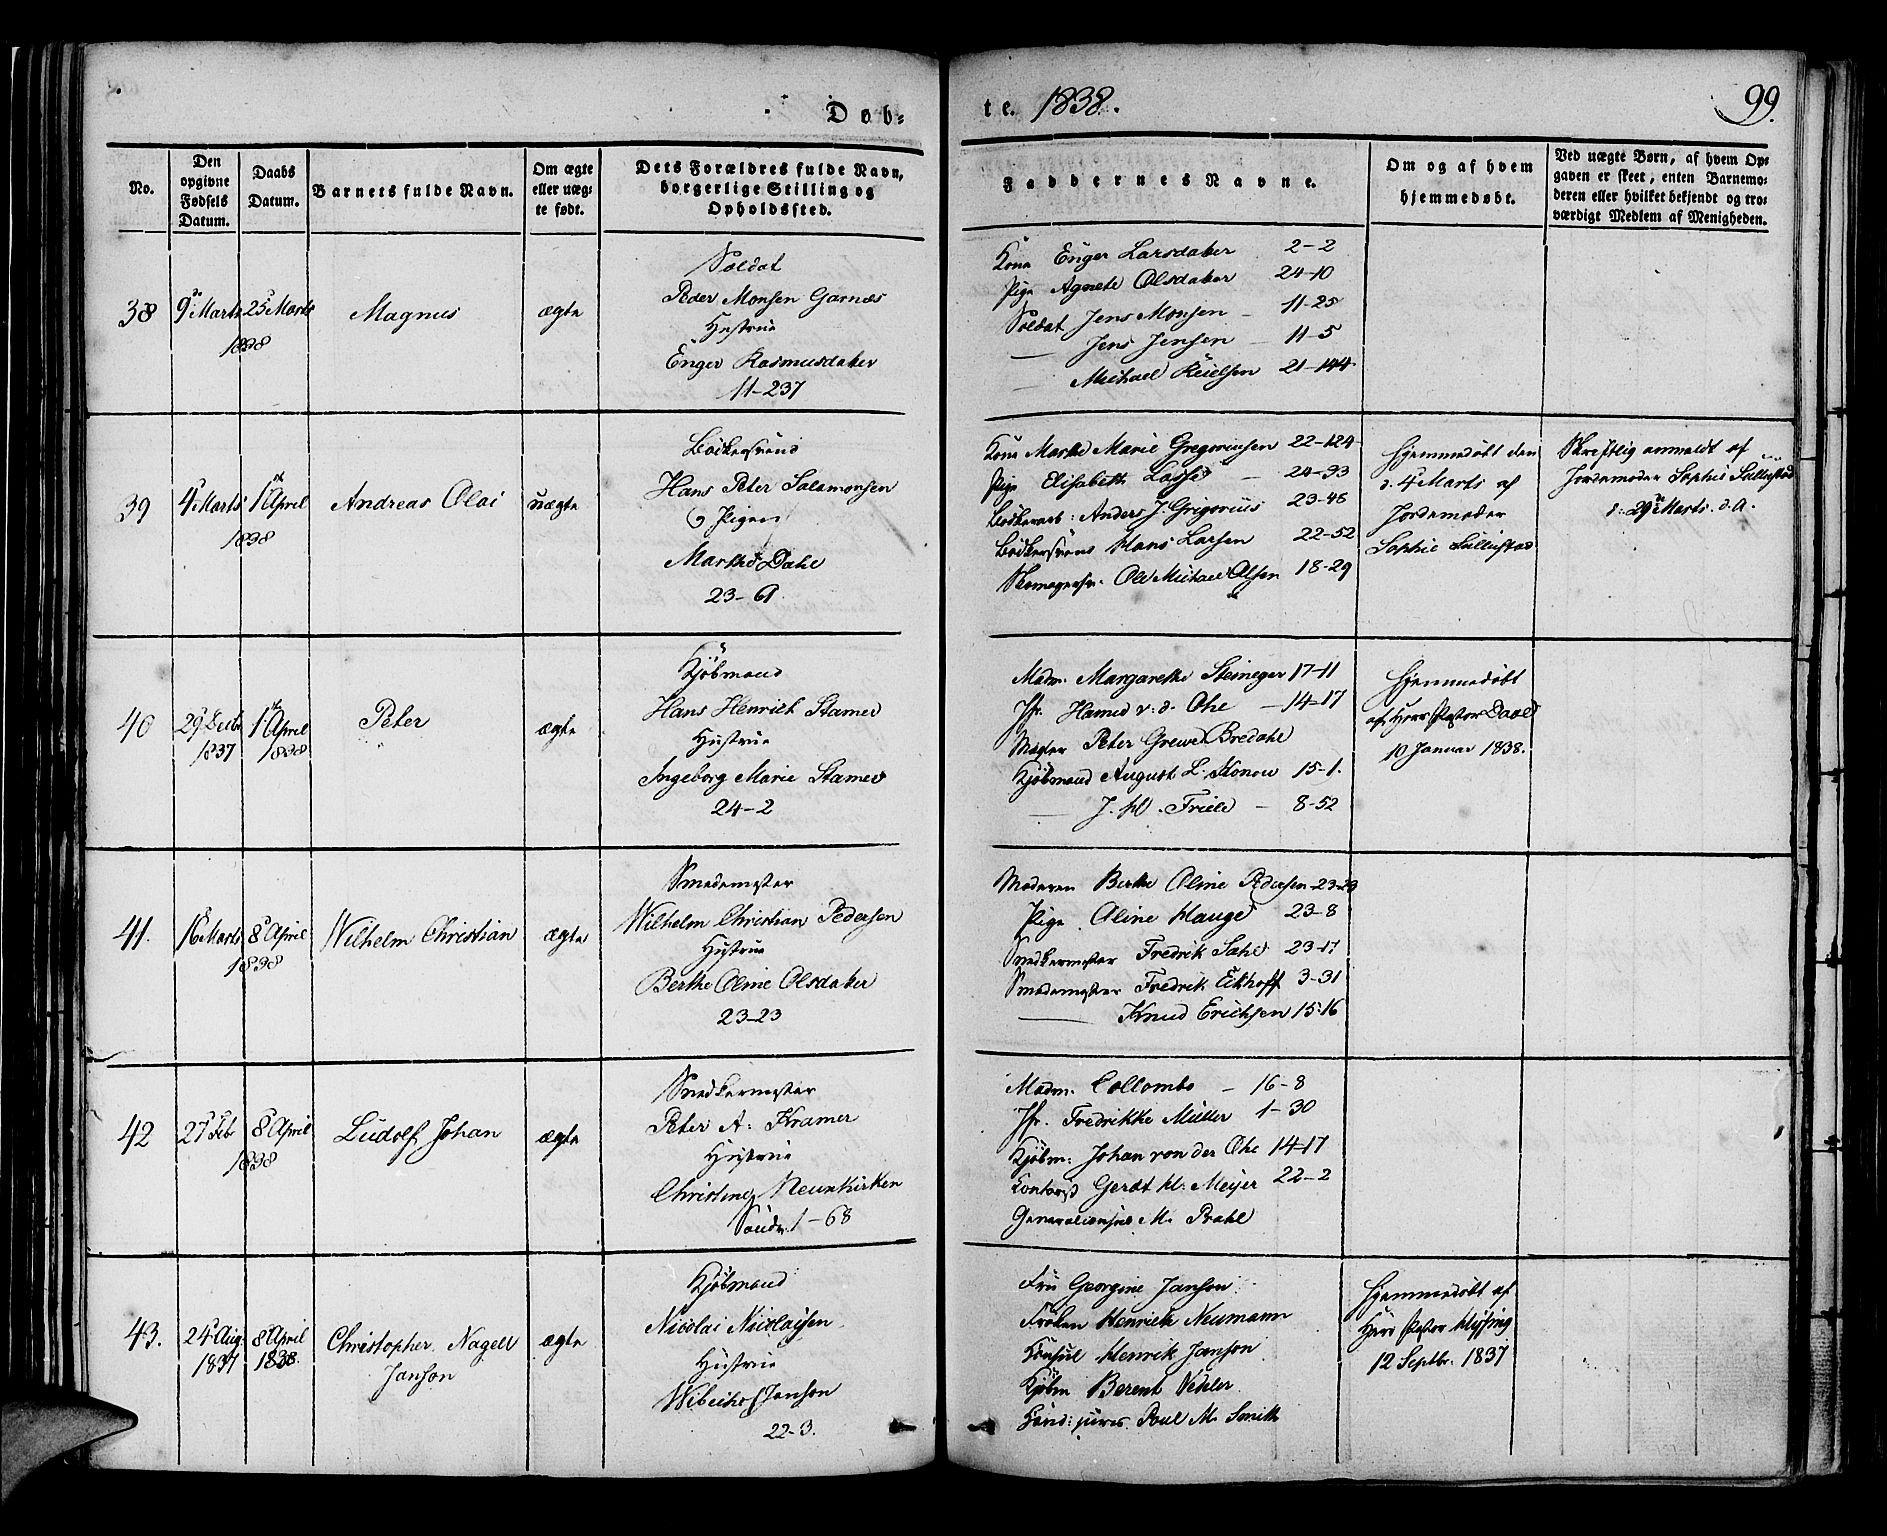 Døb-
te. 1838.
99.
No.
Den opgivne Fødsels Datum.
Daabs Datum.
Barnets fulde Navn.
Om ægte eller uæg-te født.
Dets Forældres fulde Navn, borgerlige Stilling og Opholdssted.
Faddernes Navne.
Om og af hvem hjemmedøbt.
Ved uægte Børn, af hvem Op-gaven er skeet, enten Barnemo-deren eller hvilket bekjendt og tro-værdigt Medlem af Menigheden.
38
9de Marts 25 Marts
1838
Magnus
ægte
Soldat
Peder Monsen Garnæs
Hustrue
Enger Rasmusdatter
11-237
Kone Enger Larsdatter 2-2
Pige Agnete Olsdatter 24-10
Soldat Jens Monsen - 11-25
— Jens Jensen - 11-5
— Michael Nielsen 21-144
39
4 Marts 1st April
1838
Andreas Olai
uægte
Bødkersvend
Hans Peter Salamonsen
og Pigen
Marthe Dahl
23-61
Kone Marthe Marie Gregoriusen 22-124
Pige Elisabeth Lasse - 24-33
Bødkersv: Anders J. Grigorius 23-48
Bødkersvend Hans Larsen 22-52
Skomagersv. Ole Michael Olsen 18-29
Hjemmedøbt den
d. 4 Marts af
Jordemoder
Sophie Sellustad
Skriftlig anmeldt af
Jordemoder Sophie Sellustad
d. 29 Marts. d.A.
40
29 Decbr 1st April
1837 1838
Peter
ægte
Kjøbmand
Hans Henrich Stamer
Hustrue
Ingeborg Marie Stamer
24-2
Madm. Margarethe Steineger 17-11
Jfr. Hamed v: d. Ohe - 14-17
Mægler Peter Greve Bredahl
Kjøbmand August L. Konow 15-1.
— J. H. Friele - 8-52
Hjemmedøbt
af Herr Pastor Daae
10 Januar 1838.
41.
16 Marts 8 April
1838
Wilhelm Christian
ægte
Smedemester
Wilhelm Christian Pedersen
Hustrue
Berthe Oline Olsdatter
23-23
Moderen Berthe Oline Pedersen 23-23
Pige Oline Hauge 23-8
Snedkermester Fredrik Sahl 23-17
Smedemester Fredrik Eckhoff 3-31
— Knud Erichsen 15-16
42
27 Feb 8 April
1838
Ludolf Johan
ægte
Snedkermester
Peter A. Kramer
Hustrue
Christine Neunkirken
1-68
Madm. Collombo - 16-8
Jfr. Fredrikke Müller 1-30
Kjøbm: Johan von der Ohe 14-17
Contorist Gerdt H. Meyer 22-2
M. Prahl
43.
24 Aug 8 April
1837 1838.
Christopher Nagell
Janson
ægte
Kjøbmand
Nicolai Nicolaysen
Hustrue
Janson
22-3.
Fru Georgine Janson
Frøken Henrich Neumann
Consul Henrik Janson
Kjøbm Berent Vedeler
Cand: juris Poul M. Smith
Hjemmedøbt af
Herr Pastor Hyssing
12 Septbr. 1837